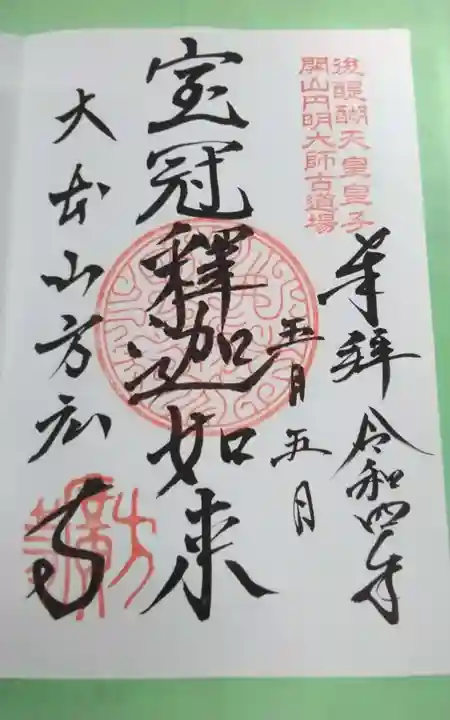 後醍醐天皇皇子
開山円明大師古道場
奉拝 令和四年
五月五月
宝冠釋迦如来
大本山方広寺